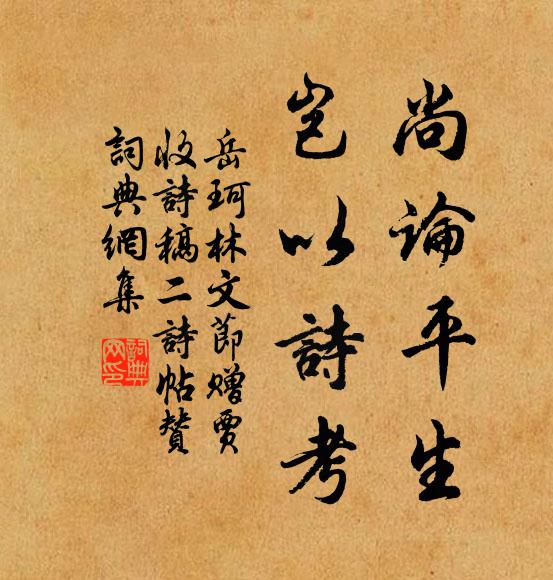 尚論平生
豈以詩考
岳珂林文節贈賈
收詩稿二詩帖贊
詞典網集
詞典網印